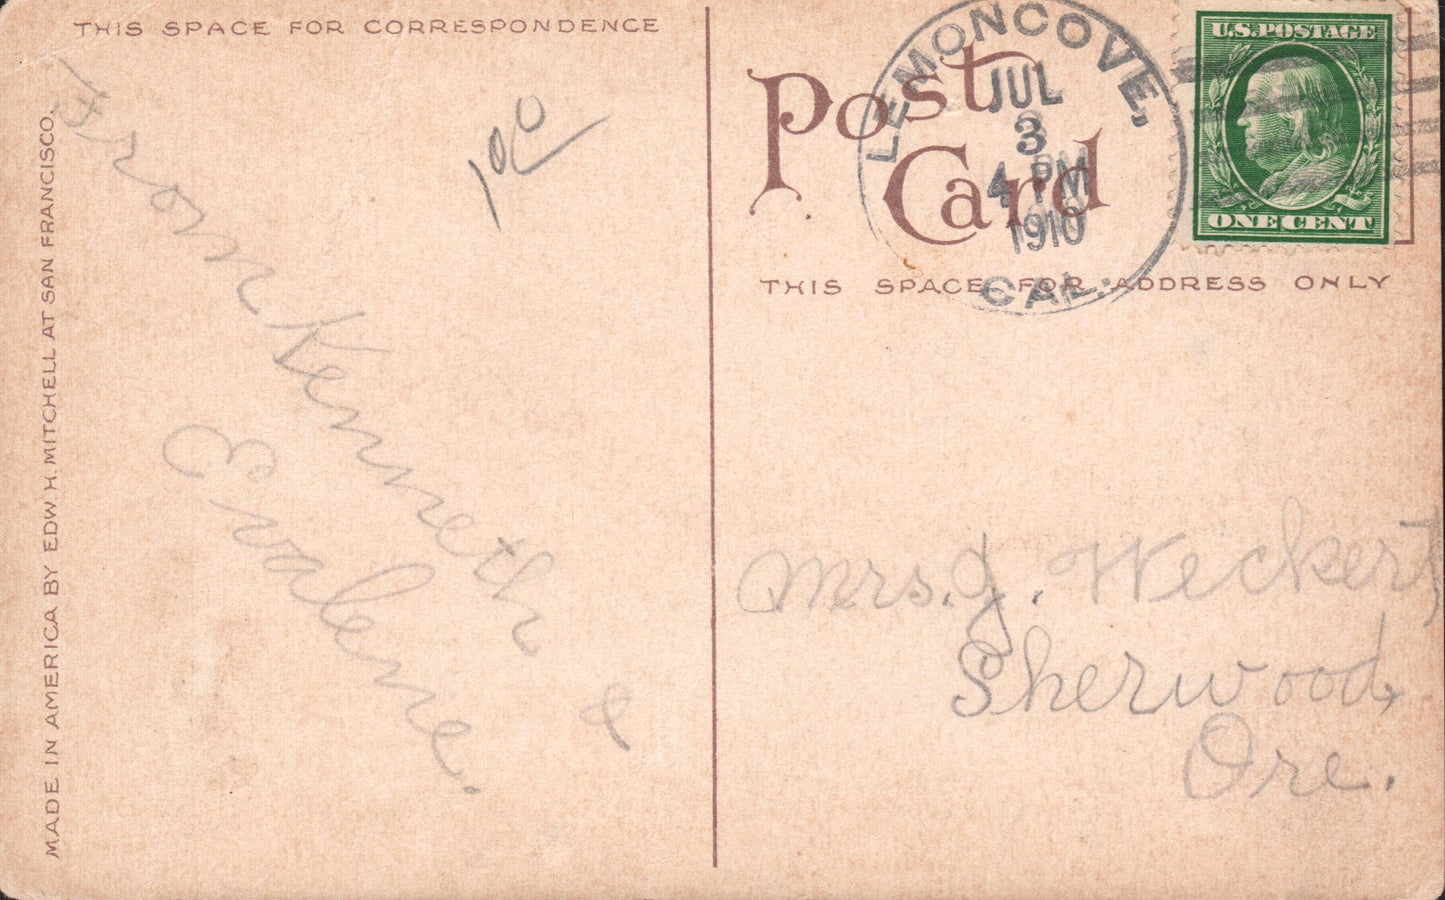 THIS SPACE FOR CORRESPONDENCE
MADE IN AMERICA BY EDW. H. MITCHELL AT SAN FRANCISCO.
100
From Kenneth &
Evalene.
Post
Card
THIS SPACE FOR ADDRESS ONLY
LEMONCOVE,
JUL
3
4 PM
1910
CAL.
U.S. POSTAGE
ONE CENT
Mrs. J. Weckert,
Sherwood,
Ore.